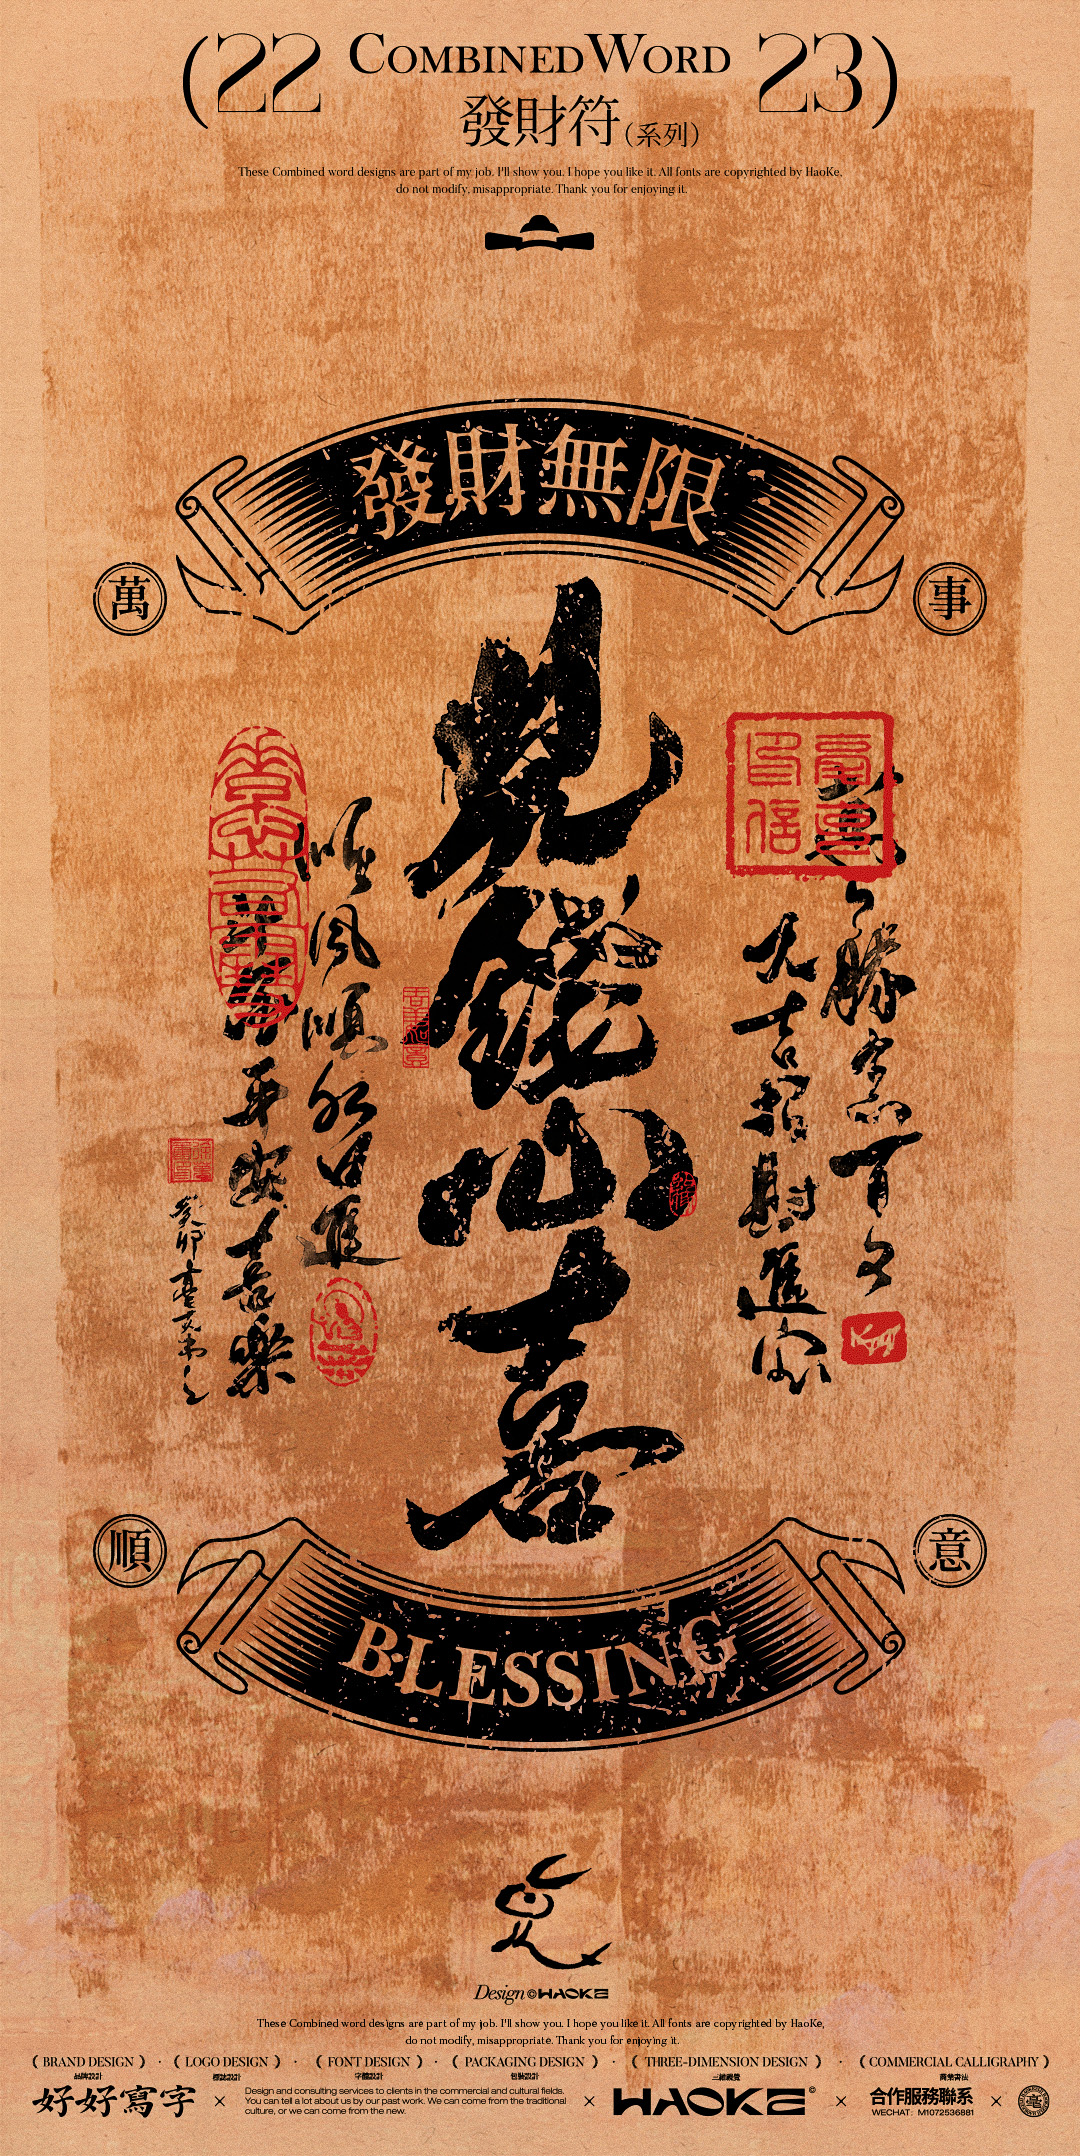 (22 COMBINED WORD 23)
發財符(系列)
These Combined word designs are part of my job. I'll show you. I hope you like it. All fonts are copyrighted by HaoKe,
do not modify, misappropriate. Thank you for enjoying it.
發財無限
萬
事
見錢心喜
大吉招財進家
順風順水日進
平安喜樂
癸卯
順
意
BLESSING
Design©HAOKE
These Combined word designs are part of my job. I'll show you. I hope you like it. All fonts are copyrighted by HaoKe,
do not modify, misappropriate. Thank you for enjoying it.
( BRAND DESIGN ) · ( LOGO DESIGN ) · ( FONT DESIGN ) · ( PACKAGING DESIGN ) · ( THREE-DIMENSION DESIGN ) · ( COMMERCIAL CALLIGRAPHY )
品牌設計 標誌設計 字體設計 包裝設計 三維視覺 商業書法
好好寫字
Design and consulting services to clients in the commercial and cultural fields.
You can tell a lot about us by our past work. We can come from the traditional
culture, or we can come from the new.
HAOKE©
合作服務聯系
WECHAT: M1072536881